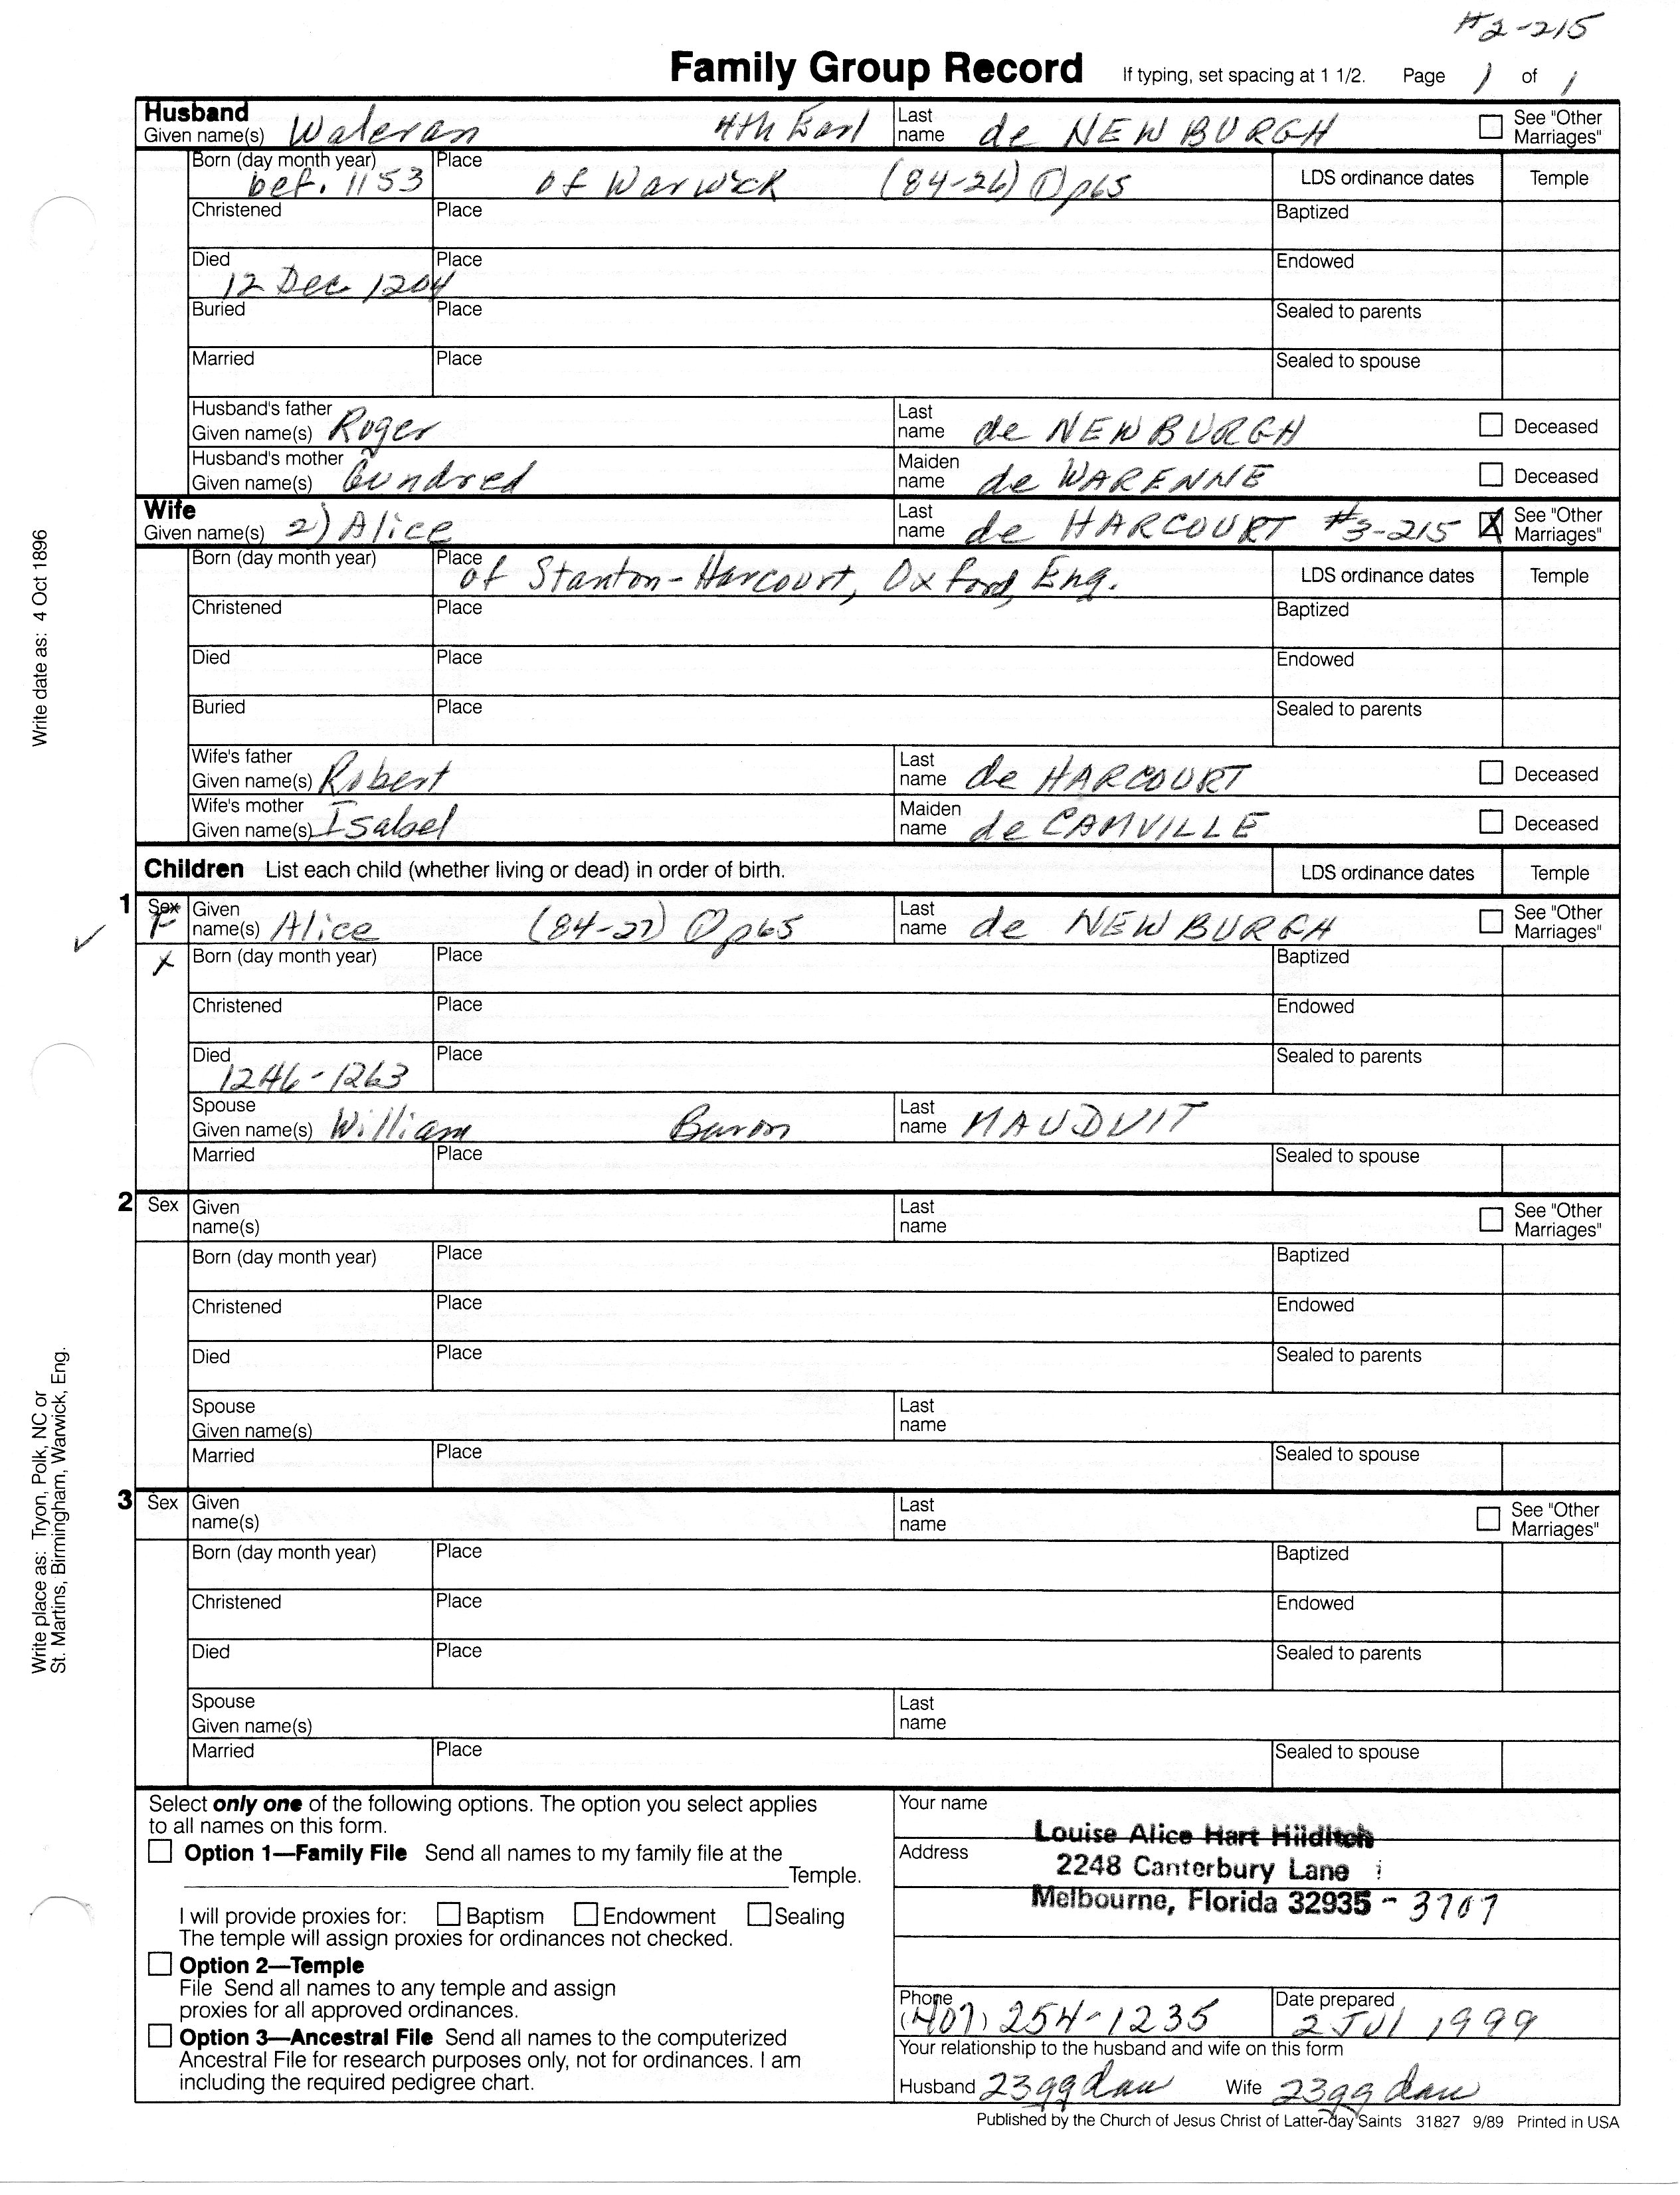 #2-215
Family Group Record If typing, set spacing at 1 1/2. Page 1 of 1
Husband
Given name(s) Waleran 4th Earl Last name de NEWBURGH See "Other Marriages"
Born (day month year) bef. 1153 Place of Warwick (84-26) p65 LDS ordinance dates Temple
Christened Place Baptized
Died 12 Dec 1204 Place Endowed
Buried Place Sealed to parents
Married Place Sealed to spouse
Husband's father Given name(s) Roger Last name de NEWBURGH Deceased
Husband's mother Given name(s) Gundred Maiden name de WARENNE Deceased
Wife
Given name(s) 2) Alice Last name de HARCOURT #3-215 X See "Other Marriages"
Born (day month year) Place of Stanton-Harcourt, Oxford, Eng. LDS ordinance dates Temple
Christened Place Baptized
Died Place Endowed
Buried Place Sealed to parents
Wife's father Given name(s) Robert Last name de HARCOURT Deceased
Wife's mother Given name(s) Isabel Maiden name de CAMVILLE Deceased
Children List each child (whether living or dead) in order of birth. LDS ordinance dates Temple
1 Sex F Given name(s) Alice (84-27) p65 Last name de NEWBURGH See "Other Marriages"
X Born (day month year) Place Baptized
Christened Place Endowed
Died 1246-1263 Place Sealed to parents
Spouse Given name(s) William Baron Last name MAUDUIT
Married Place Sealed to spouse
2 Sex Given name(s) Last name See "Other Marriages"
Born (day month year) Place Baptized
Christened Place Endowed
Died Place Sealed to parents
Spouse Given name(s) Last name
Married Place Sealed to spouse
3 Sex Given name(s) Last name See "Other Marriages"
Born (day month year) Place Baptized
Christened Place Endowed
Died Place Sealed to parents
Spouse Given name(s) Last name
Married Place Sealed to spouse
Select only one of the following options. The option you select applies
to all names on this form.
Option 1—Family File Send all names to my family file at the
Temple.
I will provide proxies for: Baptism Endowment Sealing
The temple will assign proxies for ordinances not checked.
Option 2—Temple
File Send all names to any temple and assign
proxies for all approved ordinances.
Option 3—Ancestral File Send all names to the computerized
Ancestral File for research purposes only, not for ordinances. I am
including the required pedigree chart.
Your name
Louise Alice Hart Hilditch
Address
2248 Canterbury Lane
Melbourne, Florida 32935 - 3707
Phone (407) 254-1235 Date prepared 2 Jul 1999
Your relationship to the husband and wife on this form
Husband 23gg dau Wife 23gg dau
Published by the Church of Jesus Christ of Latter-day Saints 31827 9/89 Printed in USA
Write date as: 4 Oct 1896
Write place as: Tryon, Polk, NC or
St. Martins, Birmingham, Warwick, Eng.